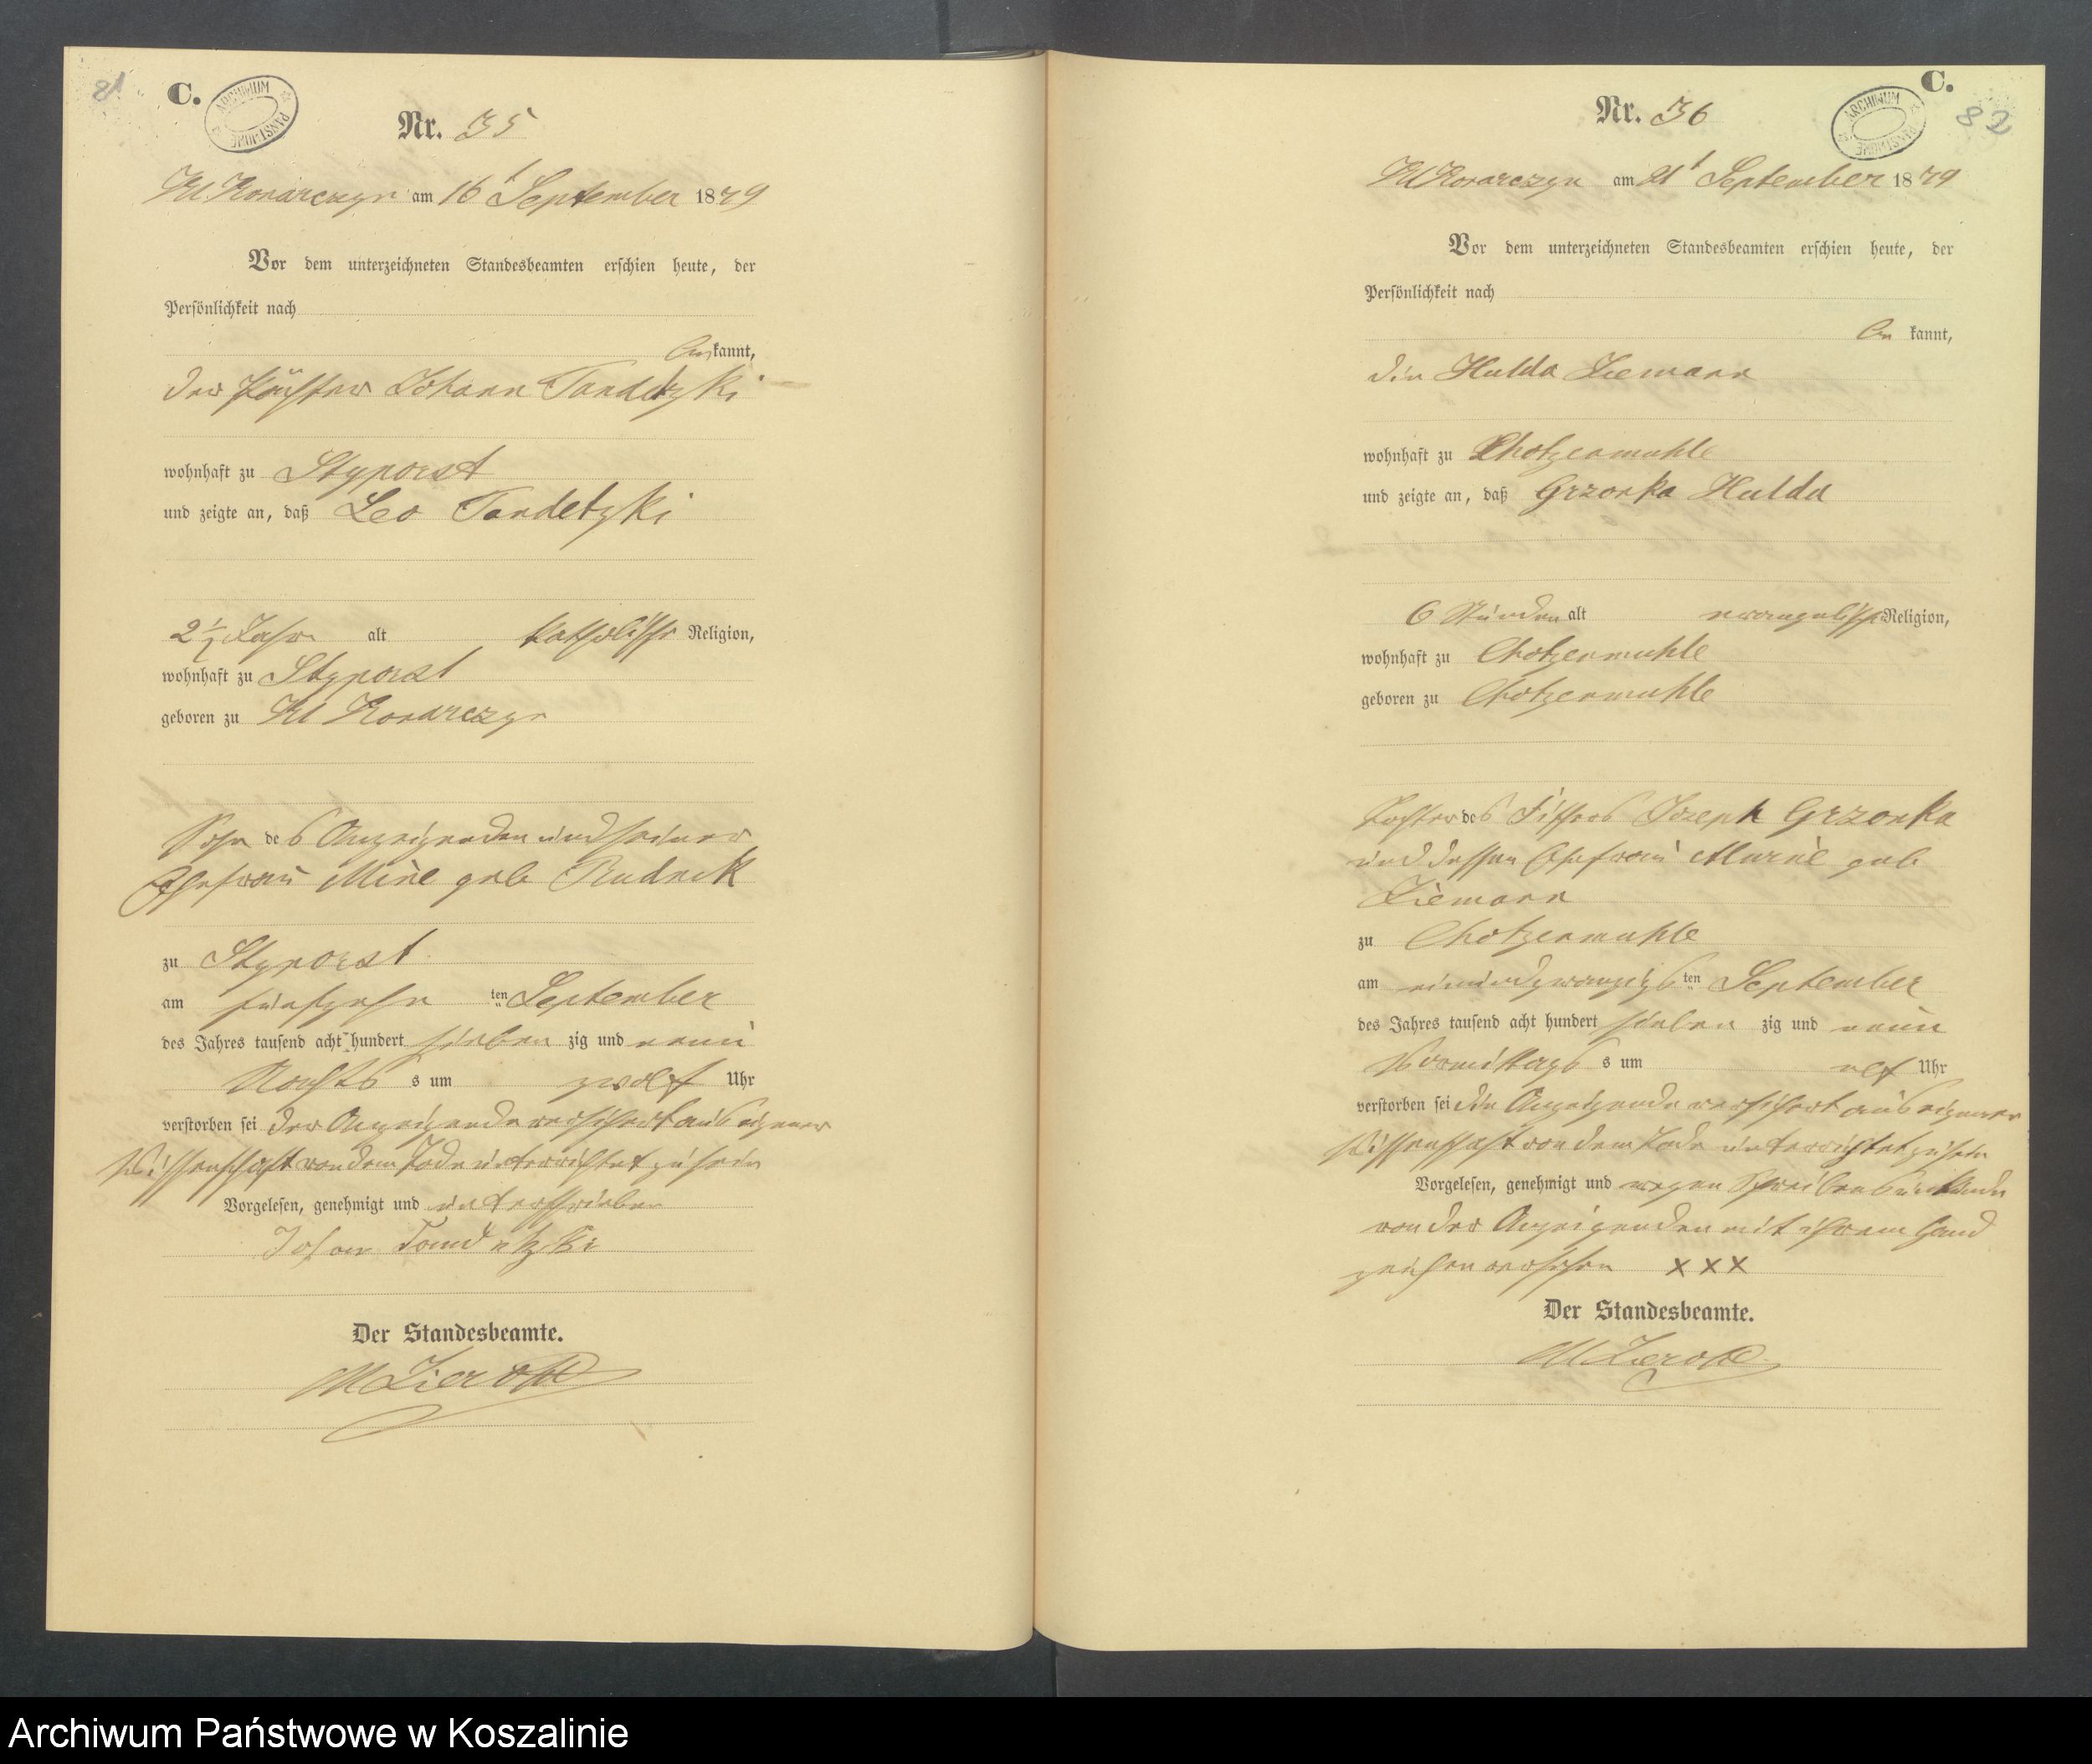 81
C.
ARCHIWUM PAŃSTWOWE
Nr. 35
Kl Konarczyn am 16t September 1879
Vor dem unterzeichneten Standesbeamten erschien heute, der
Persönlichkeit nach
bekannt,
der Pächter Johann Tandetzki
wohnhaft zu Styporst
und zeigte an, daß Leo Tandetzki
2½ Jahr alt katholischer Religion,
wohnhaft zu Styporst
geboren zu Kl Konarczyn
Sohn des Anzeigenden und seiner
Ehefrau Mine geb Rudnik
zu Styporst
am fünfzehn ten September
des Jahres tausend acht hundert sieben zig und neun
Nachts s um zwölf Uhr
verstorben sei der Anzeigende versichert aus eigener
Wissenschaft von dem Tode unterrichtet zu sein
Vorgelesen, genehmigt und unterschrieben
Johan Tandetzki
Der Standesbeamte.
M Zieroth
C.
ARCHIWUM PAŃSTWOWE
82
Nr. 36
Kl Konarczyn am 21t September 1879
Vor dem unterzeichneten Standesbeamten erschien heute, der
Persönlichkeit nach
be kannt,
die Hulda Ziemann
wohnhaft zu Chotzenmuhle
und zeigte an, daß Grzonka Hulda
6 Stunden alt evangelischer Religion,
wohnhaft zu Chotzenmuhle
geboren zu Chotzenmuhle
Tochter des Fischers Joseph Grzonka
und dessen Ehefrau Marie geb
Ziemann
zu Chotzenmuhle
am einundzwanzigs ten September
des Jahres tausend acht hundert sieben zig und neun
Vormittags s um elf Uhr
verstorben sei die Anzeigende versichert aus eigener
Wissenschaft von dem Tode unterrichtet zu sein
Vorgelesen, genehmigt und wegen Schreibensunkunde
von der Anzeigenden mit ihrem Hand
zeichen versehen x x x
Der Standesbeamte.
M Zieroth
Archiwum Państwowe w Koszalinie